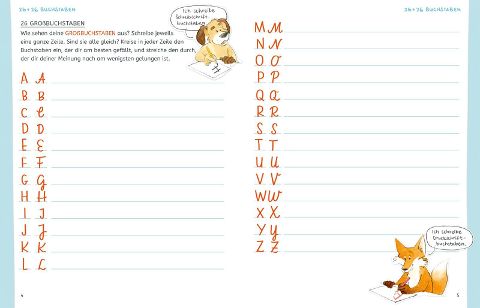 26+26 BUCHSTABEN
26 GROẞBUCHSTABEN
Wie sehen deine GROẞBUCHSTABEN aus? Schreibe jeweils
eine ganze Zeile. Sind sie alle gleich? Kreise in jeder Zeile den
Buchstaben ein, der dir am besten gefällt, und streiche den durch,
der deiner Meinung nach am wenigsten gelungen ist.
Ich schreibe
Schreibschrift-
buchstaben.
A A
B B
C C
D D
E E
F F
G G
H H
I I
J J
K K
L L
4
26+26 BUCHSTABEN
M M
N N
O O
P P
Q Q
R R
S S
T T
U U
V V
W W
X X
Y Y
Z Z
Ich schreibe
Druckschrift-
buchstaben.
5